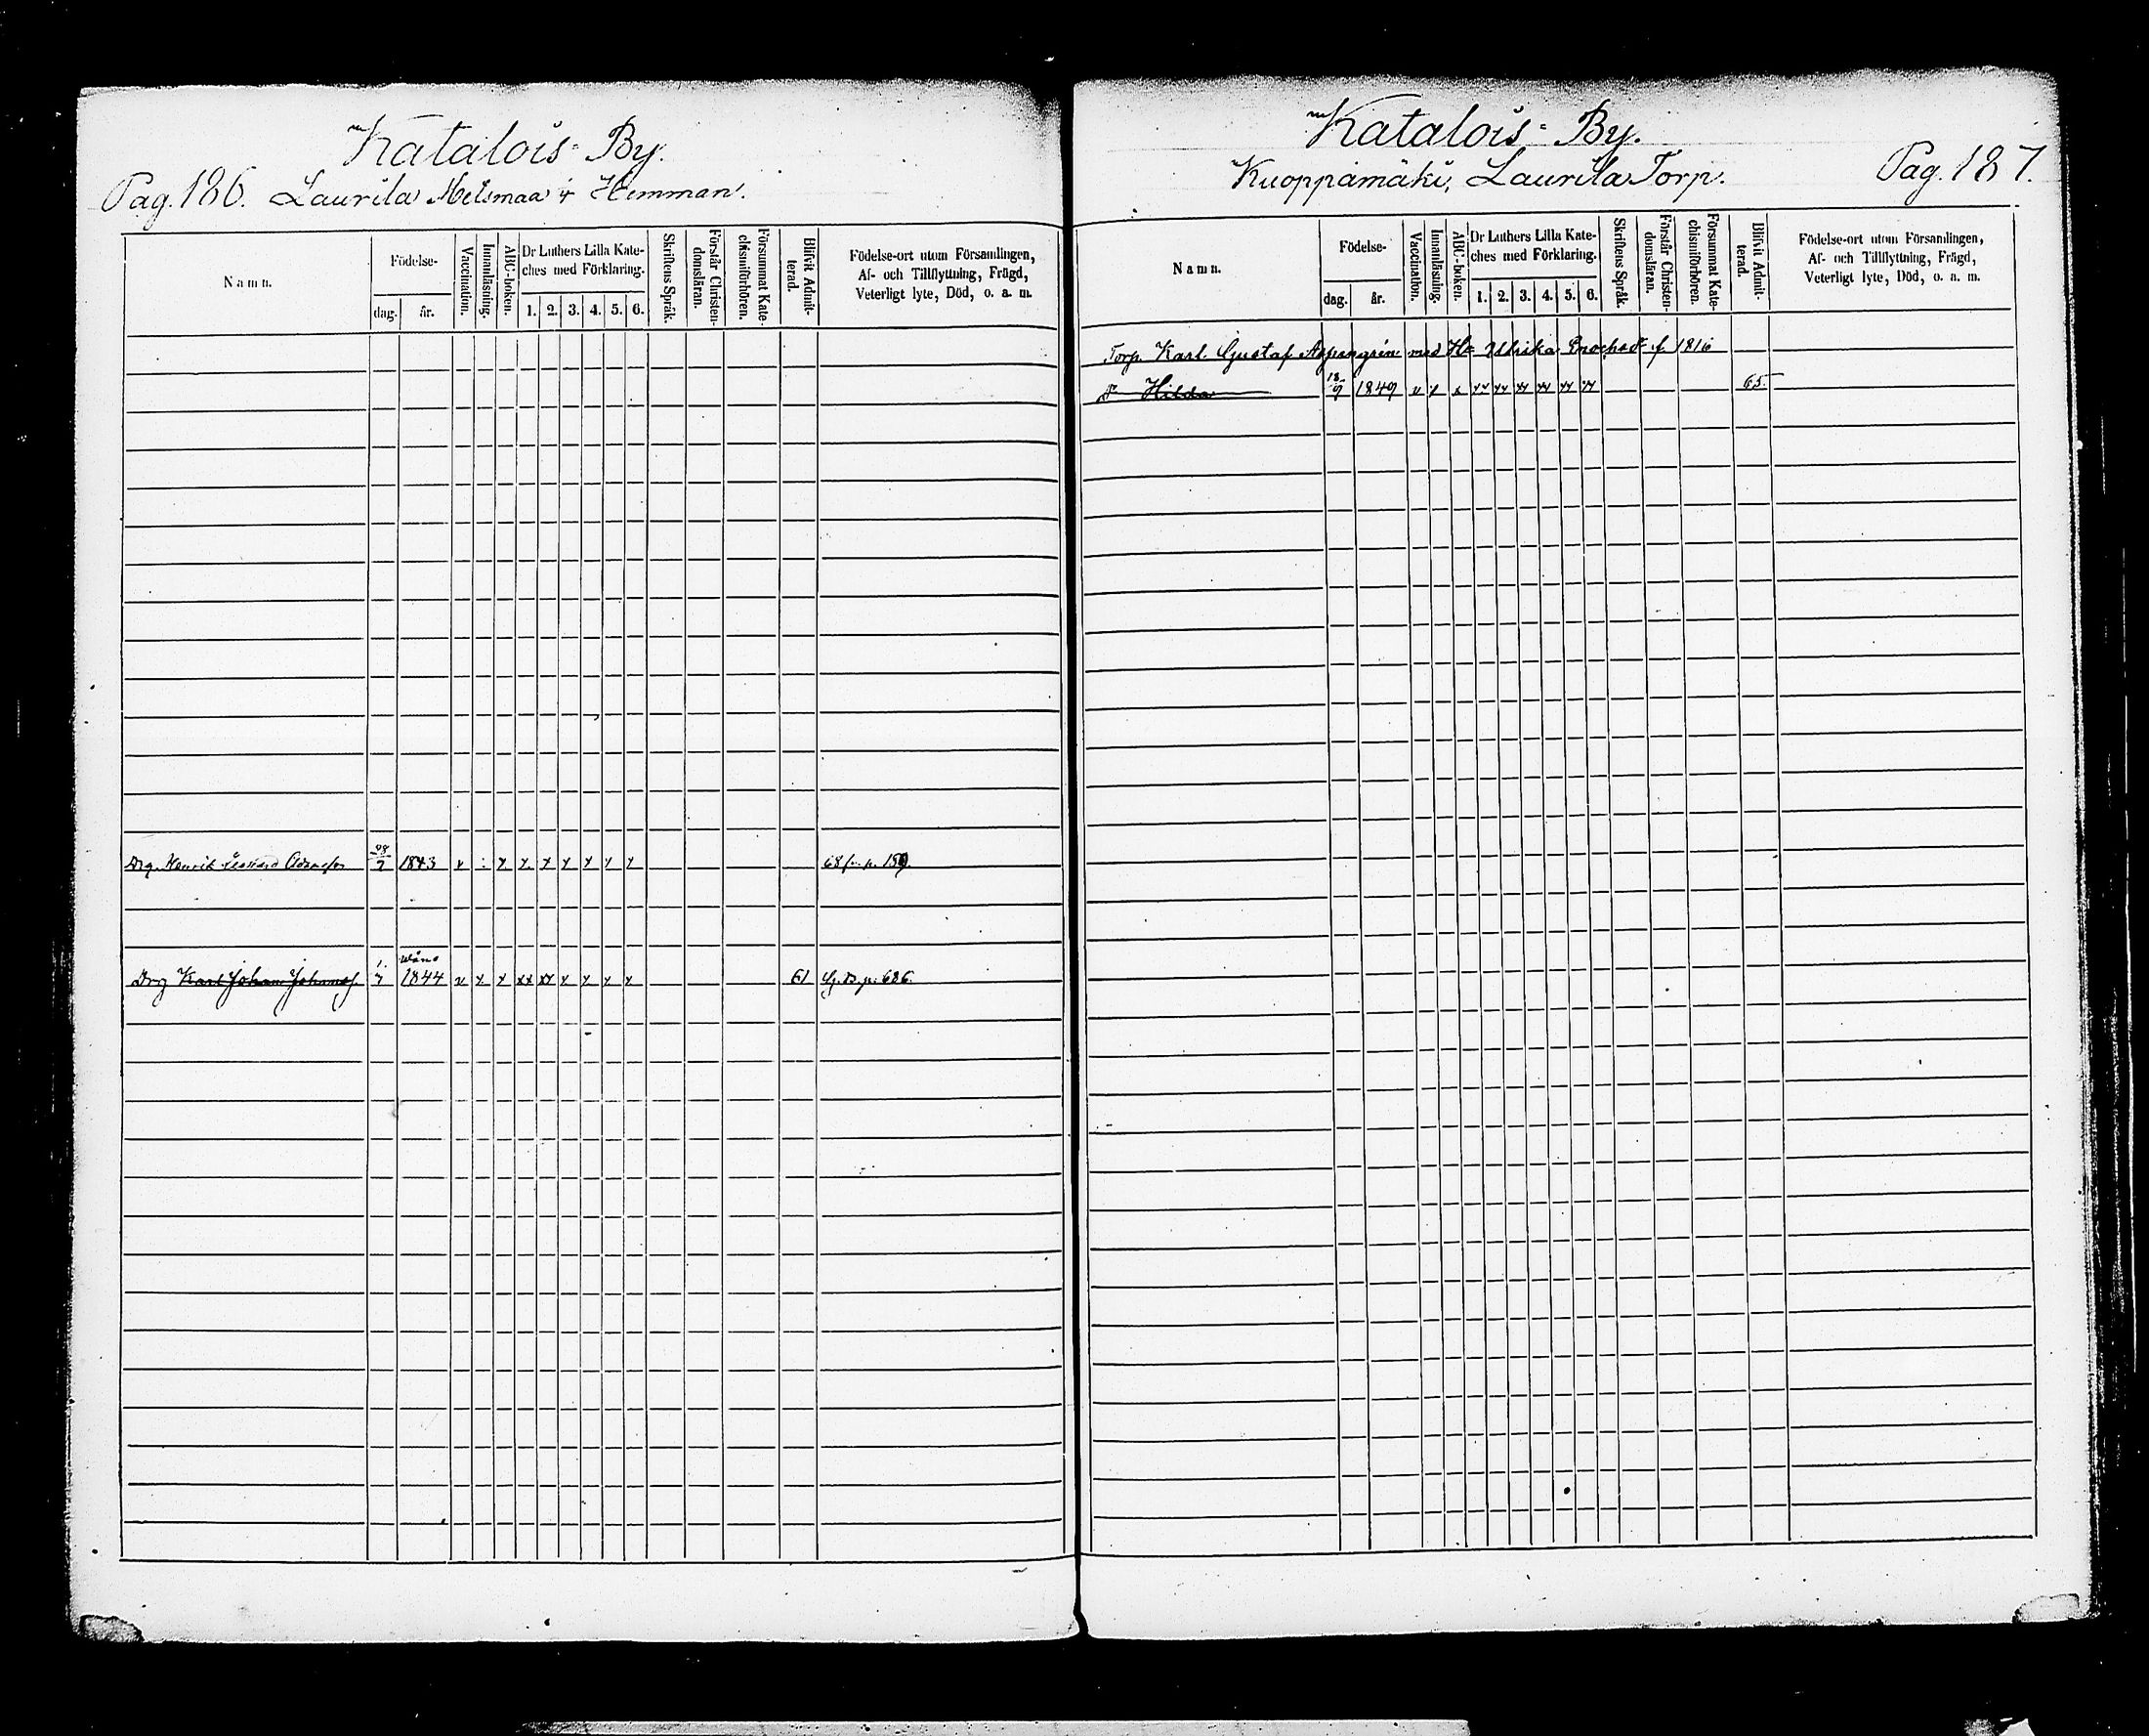 Katalois By.
Pag. 186. Laurila Metsmaa Hemman.
Namn.
Födelse-
dag.
år.
Vaccination.
Innanläsning.
ABC-boken.
Dr Luthers Lilla Kate-
ches med Förklaring.
1. 2. 3. 4. 5. 6.
Skriftens Språk.
Förstår Christen-
domsläran.
Försummat Kate-
chismiförhören.
Blifvit Admit-
terad.
Födelse-ort utom Församlingen,
Af- och Tillflyttning, Frägd,
Veterligt lyte, Död, o. a. m.
Drg. Henrik Leonard Adamsson 1843 x x x x x x x x 68 fr. p. 159.
Drg Karl Johan Johansf. 1/7 1844 v x x xx xx x x x x 61 p. 686.
Katalois By.
Kuoppamäki, Laurila Torp.
Pag. 187.
Namn.
Födelse-
dag.
år.
Vaccination.
Innanläsning.
ABC-boken.
Dr Luthers Lilla Kate-
ches med Förklaring.
1. 2. 3. 4. 5. 6.
Skriftens Språk.
Förstår Christen-
domsläran.
Försummat Kate-
chismiförhören.
Blifvit Admit-
terad.
Födelse-ort utom Församlingen,
Af- och Tillflyttning, Frägd,
Veterligt lyte, Död, o. a. m.
Torp. Karl Gustaf Aspengrén med H. Ulrika Enochsd. f. 1816
D. Hilda 18/9 1849 v x x xx xx xx xx xx xx 65.